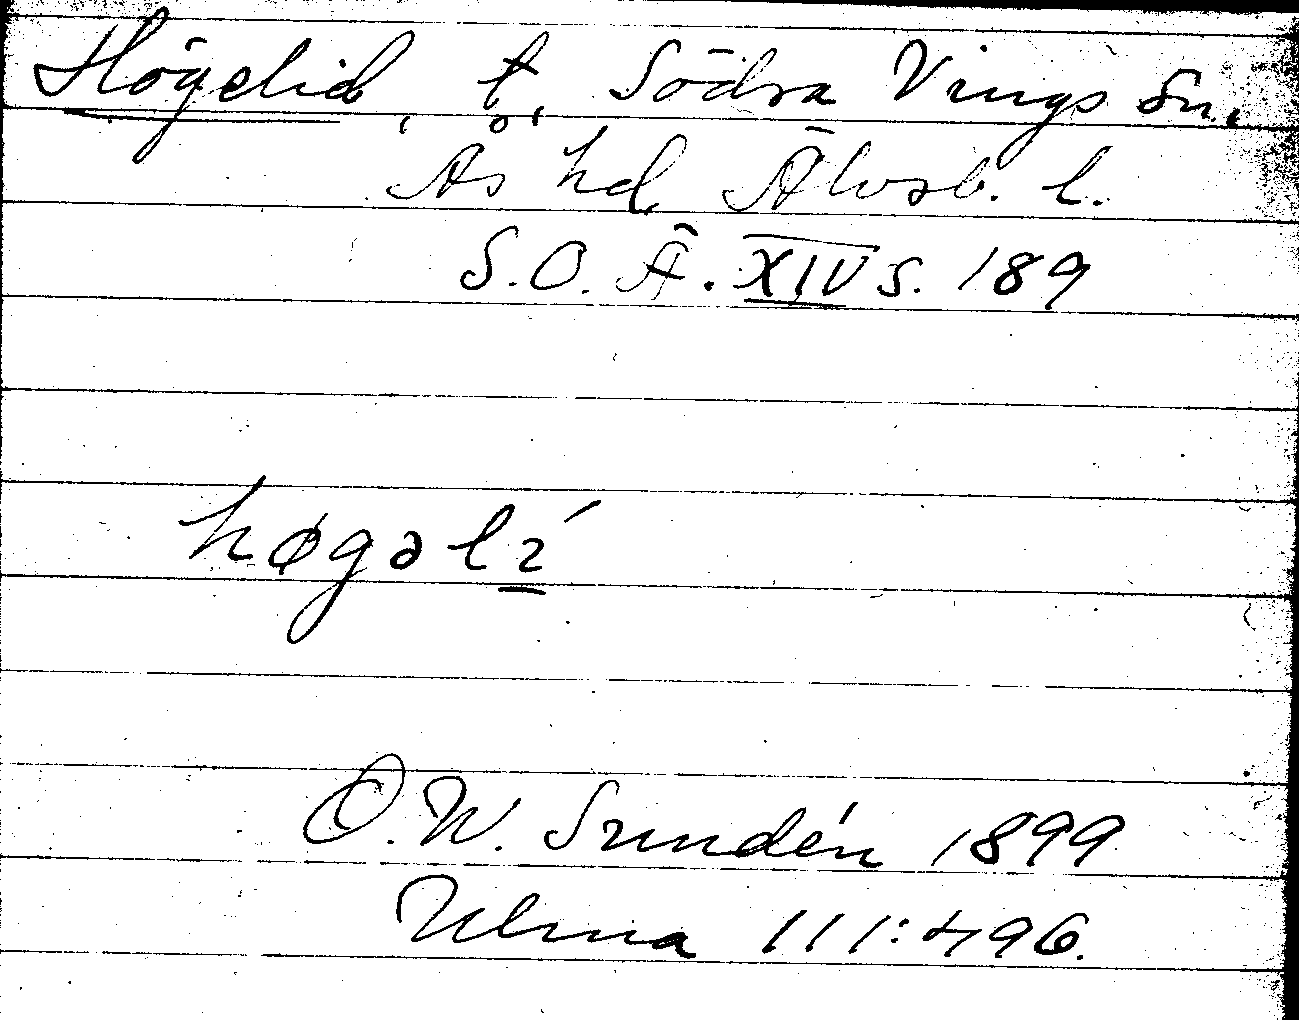 Högelid, t. Södra Vings sn,
Ås hd Älvsb. l.
S.O.Ä. XIV s. 189
høgəlí
O.W. Sundén 1899
Ulma 111:496.